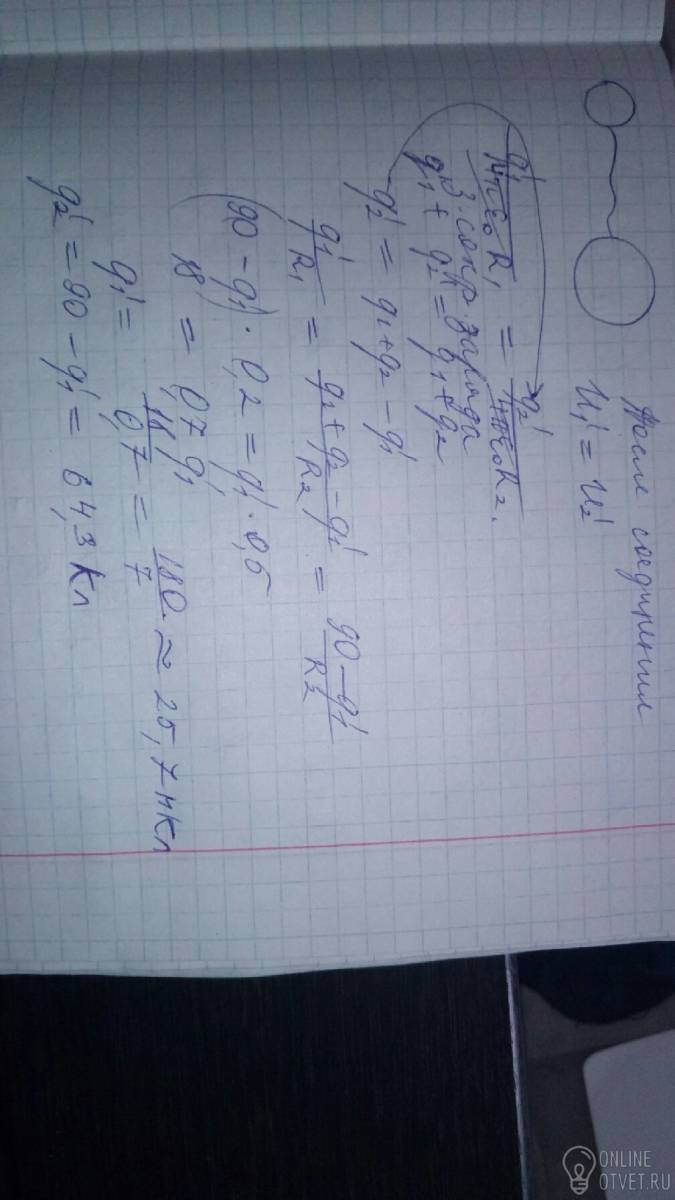 После соединения
U₁' = U₂'
q₁'/4πε₀R₁ = q₂'/4πε₀R₂.
З. сохр. заряда
q₁' + q₂' = q₁ + q₂
q₂' = q₁ + q₂ - q₁'
q₁'/R₁ = q₁ + q₂ - q₁'/R₂ = 90 - q₁'/R₂
(90 - q₁') · 0,2 = q₁' · 0,5
18 = 0,7 q₁
q₁' = 18/0,7 = 180/7 ≈ 25,7 нКл
q₂' = 90 - q₁' = 64,3 Кл
ONLINE
OTVET.RU